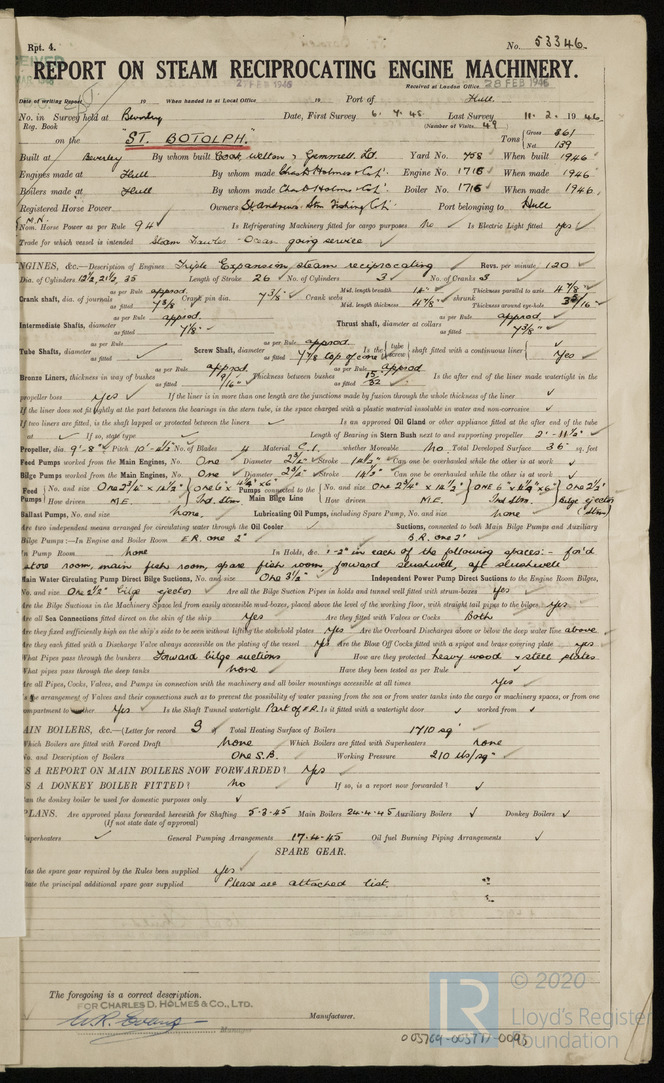 Rpt. 4. No. 53346.
REPORT ON STEAM RECIPROCATING ENGINE MACHINERY.
2 FEB 1946 Received at London Office 28 FEB 1946
Date of writing Report 19 When handed in at Local Office 19 Port of Hull.
No. in Survey held at Beverley Date, First Survey 6. 7. 45 Last Survey 11. 2. 1946.
Reg. Book (Number of Visits. 49
on the "ST. BOTOLPH." Tons Gross 361
Net 139
Built at Beverley By whom built Cook Welton & Gemmell Ld. Yard No. 758 When built 1946
Engines made at Hull By whom made Chas D. Holmes & Co Ld. Engine No. 1716 When made 1946
Boilers made at Hull By whom made Chas D. Holmes & Co Ld. Boiler No. 1716 When made 1946.
Registered Horse Power Owners St. Andrews Stm Fishing Co Ld. Port belonging to Hull
M.N.
Nom. Horse Power as per Rule 94 Is Refrigerating Machinery fitted for cargo purposes No Is Electric Light fitted yes
Trade for which vessel is intended Steam Trawler - Ocean going service
ENGINES, &c.—Description of Engines Triple Expansion, steam reciprocating Revs. per minute 120
Dia. of Cylinders 12½, 21½, 35 Length of Stroke 26 No. of Cylinders 3 No. of Cranks 3
Crank shaft, dia. of journals as per Rule approd. as fitted 7⅜ Crank pin dia. 7⅜" Crank webs Mid. length breadth 14" Mid. length thickness 4⅞" shrunk Thickness parallel to axis 4⅞" Thickness around eye-hole
Intermediate Shafts, diameter as per Rule approd. as fitted 7⅛" Thrust shaft, diameter at collars as per Rule approd. as fitted 7⅜"
Tube Shafts, diameter as per Rule as fitted Screw Shaft, diameter as per Rule approd. as fitted 7⅞ top of cone Is the tube screw shaft fitted with a continuous liner Yes
Bronze Liners, thickness in way of bushes as per Rule approd as fitted 9/16" Thickness between bushes as per Rule approd as fitted 15/32 Is the after end of the liner made watertight in the
propeller boss yes If the liner is in more than one length are the junctions made by fusion through the whole thickness of the liner
If the liner does not fit tightly at the part between the bearings in the stern tube, is the space charged with a plastic material insoluble in water and non-corrosive
If two liners are fitted, is the shaft lapped or protected between the liners Is an approved Oil Gland or other appliance fitted at the after end of the tube
If so, state type Length of Bearing in Stern Bush next to and supporting propeller 2'-11½"
Propeller, dia. 9'-8" Pitch 10'-4½" No. of Blades 4 Material C.I. whether Moveable No. Total Developed Surface 36 sq. feet
Feed Pumps worked from the Main Engines, No. One Diameter 2¾" Stroke 14½" Can one be overhauled while the other is at work
Bilge Pumps worked from the Main Engines, No. One Diameter 2¾" Stroke 14½" Can one be overhauled while the other is at work
Feed Pumps No. and size One 2¾" x 14½" One 6 x 4¼" x 6" Pumps connected to the Main Bilge Line No. and size One 2¾" x 14½" One 6 x 4¼" x 6" One 2½"
How driven M.E. Ind. Stm. How driven M.E. Ind. Stm. Bilge ejector (Stm)
Ballast Pumps, No. and size None. Lubricating Oil Pumps, including Spare Pump, No. and size None
Are two independent means arranged for circulating water through the Oil Cooler Suctions, connected to both Main Bilge Pumps and Auxiliary
Bilge Pumps :—In Engine and Boiler Room E.R. one 2" B.R. one 2"
In Pump Room none In Holds, &c. 1-2" in each of the following spaces:- for'd
store room, main fish room, spare fish room, forward slushwell, aft slushwell
Main Water Circulating Pump Direct Bilge Suctions, No. and size One 3½" Independent Power Pump Direct Suctions to the Engine Room Bilges,
No. and size One 2½" bilge ejector Are all the Bilge Suction Pipes in holds and tunnel well fitted with strum-boxes Yes
Are the Bilge Suctions in the Machinery Space led from easily accessible mud-boxes, placed above the level of the working floor, with straight tail pipes to the bilges yes
Are all Sea Connections fitted direct on the skin of the ship Yes Are they fitted with Valves or Cocks Both
Are they fixed sufficiently high on the ship's side to be seen without lifting the stokehold plates Yes Are the Overboard Discharges above or below the deep water line above
Are they each fitted with a Discharge Valve always accessible on the plating of the vessel Yes Are the Blow Off Cocks fitted with a spigot and brass covering plate yes
What Pipes pass through the bunkers Forward bilge suctions How are they protected heavy wood & steel plates
What pipes pass through the deep tanks None Have they been tested as per Rule
Are all Pipes, Cocks, Valves, and Pumps in connection with the machinery and all boiler mountings accessible at all times Yes
Is the arrangement of Valves and their connections such as to prevent the possibility of water passing from the sea or from water tanks into the cargo or machinery spaces, or from one
compartment to another Yes Is the Shaft Tunnel watertight Part of E.R. Is it fitted with a watertight door worked from
MAIN BOILERS, &c.—(Letter for record S Total Heating Surface of Boilers 1710 sq'
Which Boilers are fitted with Forced Draft None Which Boilers are fitted with Superheaters none
No. and Description of Boilers One S.B. Working Pressure 210 lbs/sq"
IS A REPORT ON MAIN BOILERS NOW FORWARDED? Yes
IS A DONKEY BOILER FITTED? No If so, is a report now forwarded?
Can the donkey boiler be used for domestic purposes only
PLANS. Are approved plans forwarded herewith for Shafting 5-3-45 Main Boilers 24-4-45 Auxiliary Boilers Donkey Boilers
(If not state date of approval)
Superheaters General Pumping Arrangements 17-4-45 Oil fuel Burning Piping Arrangements
SPARE GEAR.
Has the spare gear required by the Rules been supplied Yes.
State the principal additional spare gear supplied Please see attached list.
The foregoing is a correct description.
FOR CHARLES D. HOLMES & CO., LTD.
W.R. Evans Manufacturer.
Manager
LR © 2020
Lloyd's Register
Foundation
003769-003777-0093